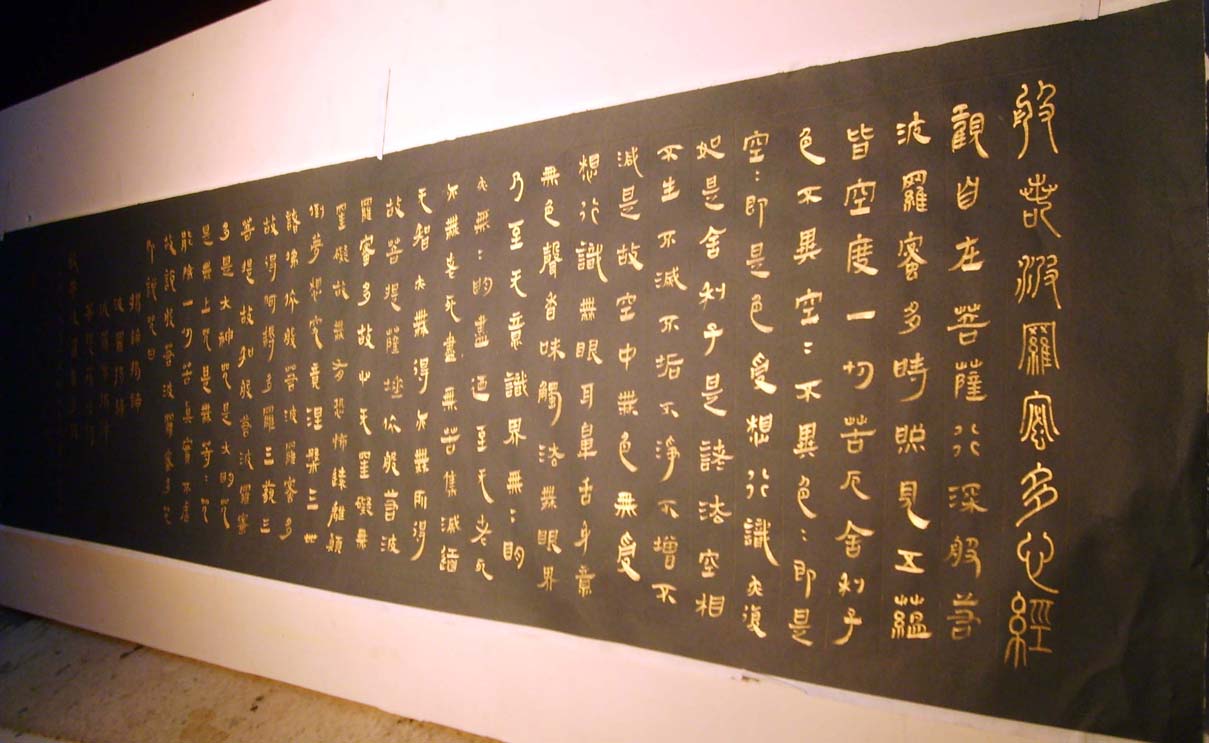 般若波羅密多心經
觀自在菩薩行深般若
波羅蜜多時照見五蘊
皆空度一切苦厄舍利子
色不異空:不異色:即是
空:即是色受想行識亦復
如是舍利子是諸法空相
不生不滅不垢不淨不增不
減是故空中無色無受
想行識無眼耳鼻舌身意
無色聲香味觸法無眼界
乃至无意識界無:明
亦無:明盡迺至无老死
亦無老死盡無苦集滅道
无智亦無得亦無所得
故菩提薩埵依般若波
羅蜜多故心无罣礙無
罣礙故無有恐怖遠離顛
倒夢想究竟涅槃三世
諸佛依般若波羅蜜多
故得阿耨多羅三藐三
菩提故知般若波羅蜜
多是大神咒是大明咒
是無上咒是無等:咒
能除一切苦真實不虛
故說般若波羅蜜多咒
即說咒曰
揭諦揭諦
波羅揭諦
波羅僧揭諦
菩提薩婆訶